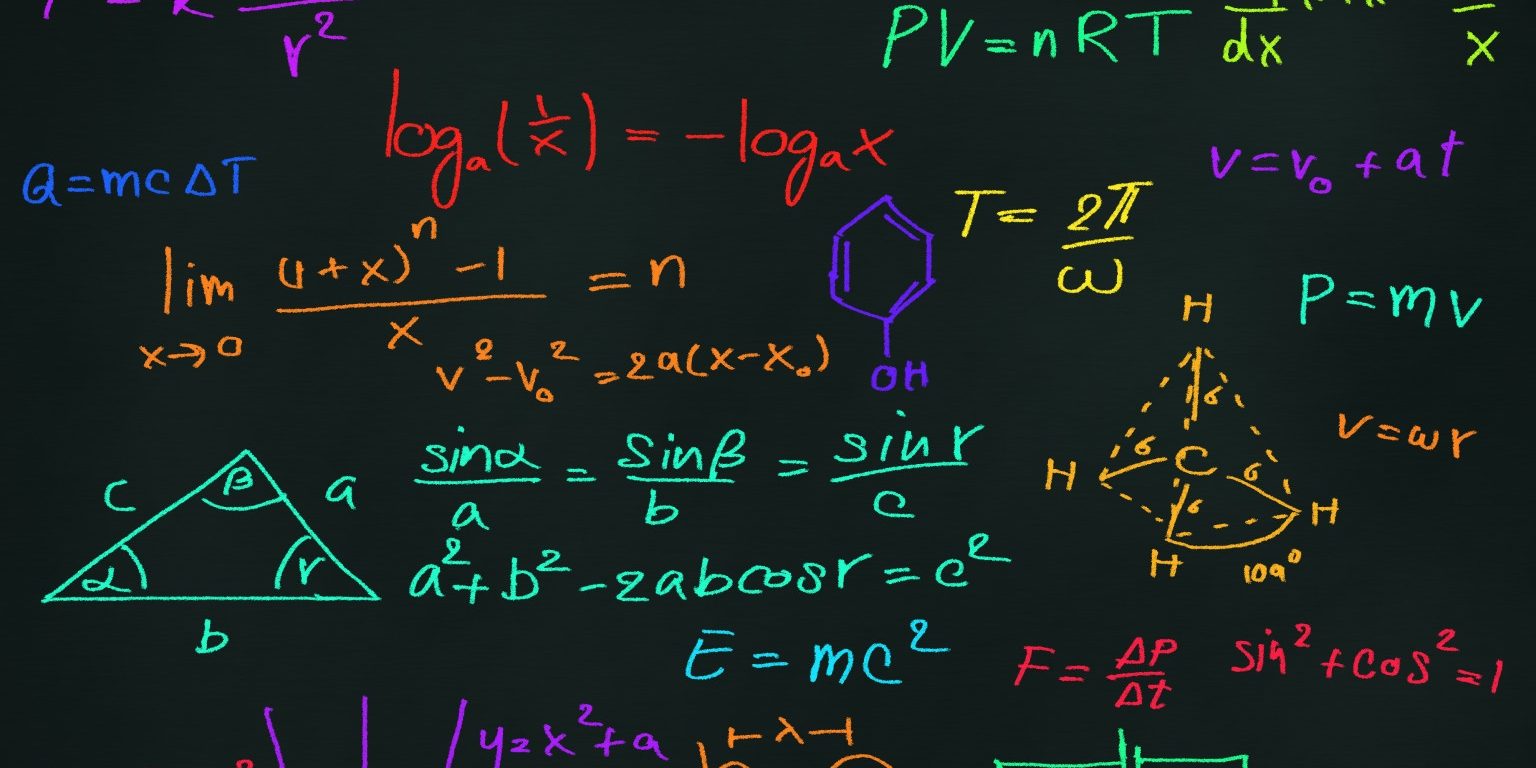 r²
PV=nRT
dx
x
logₐ(1/x) = -logₐx
Q=mcΔT
v=v₀+at
T=2π/ω
lim x→0 ((1+x)ⁿ-1)/x = n
P=mv
v²-v₀²=2a(x-x₀)
OH
H
6
v=ωr
H 6 C 6 H
6
H
109°
c β a
α r
b
sinα/a = sinβ/b = sinr/c
a²+b²-2abcosr=c²
E=mc²
F=ΔP/Δt
sin²+cos²=1
y=x²+a
λ